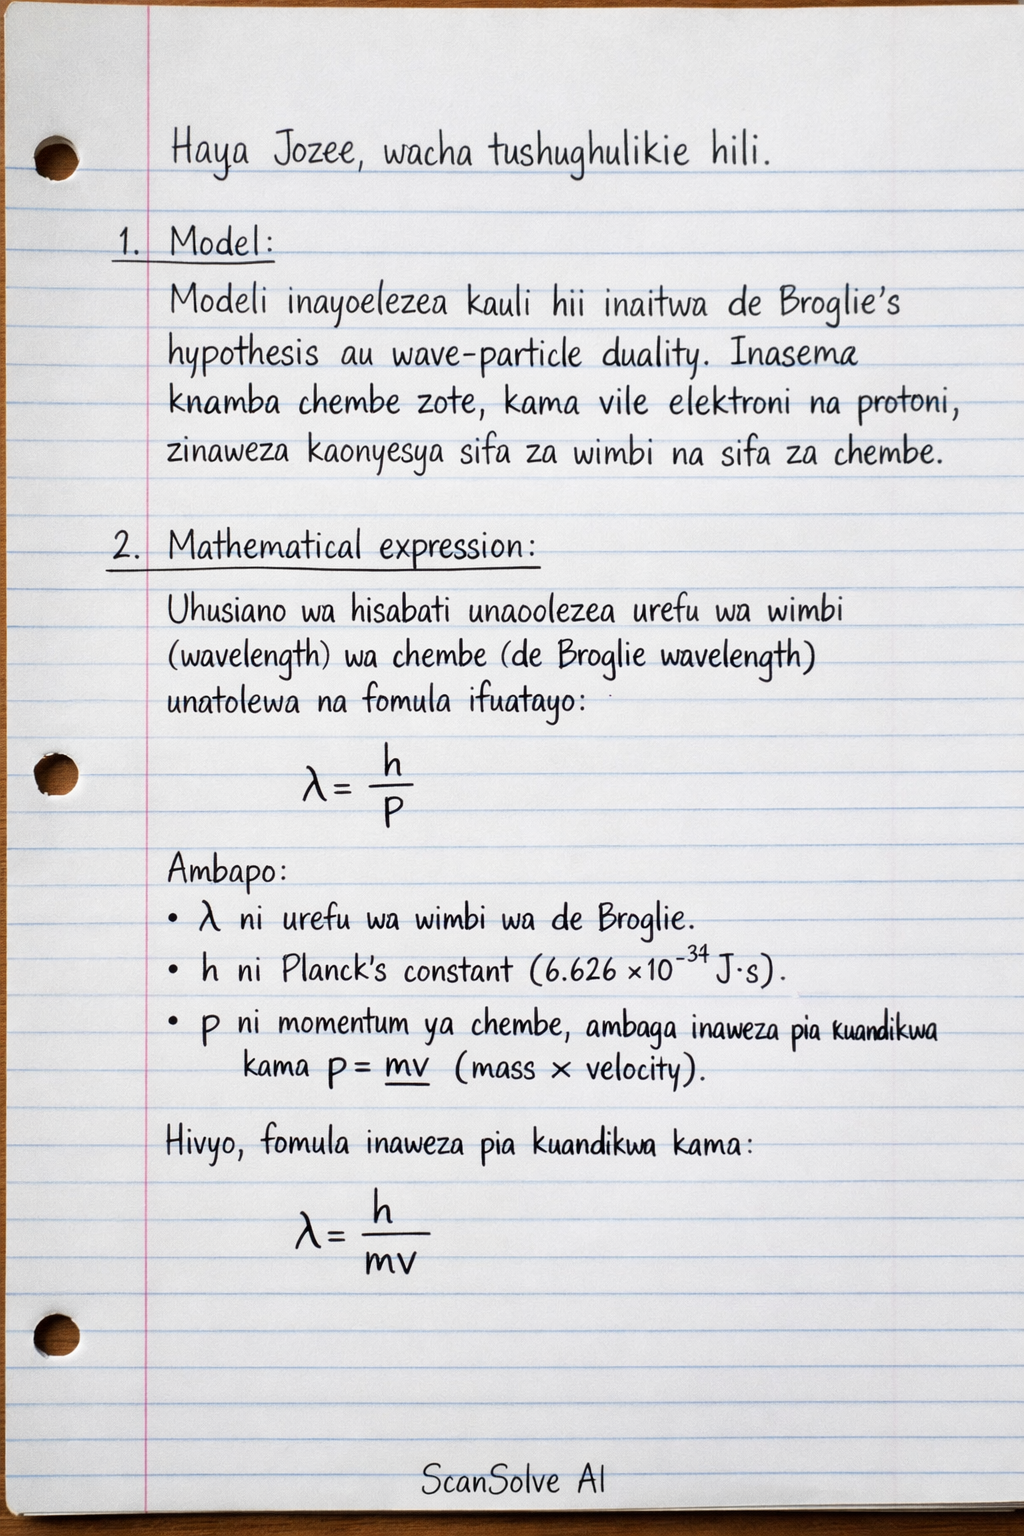 Haya Jozee, wacha tushughulikie hili.
1. Model:
Modeli inayoelezea kauli hii inaitwa de Broglie's
hypothesis au wave-particle duality. Inasema
knamba chembe zote, kama vile elektroni na protoni,
zinaweza kaonyesya sifa za wimbi na sifa za chembe.
2. Mathematical expression:
Uhusiano wa hisabati unaoolezea urefu wa wimbi
(wavelength) wa chembe (de Broglie wavelength)
unatolewa na fomula ifuatayo:
λ = h/p
Ambapo:
• λ ni urefu wa wimbi wa de Broglie.
• h ni Planck's constant (6.626 ×10⁻³⁴ J·s).
• p ni momentum ya chembe, ambaga inaweza pia kuandikwa
kama p = mv (mass × velocity).
Hivyo, fomula inaweza pia kuandikwa kama:
λ = h/mv
ScanSolve AI